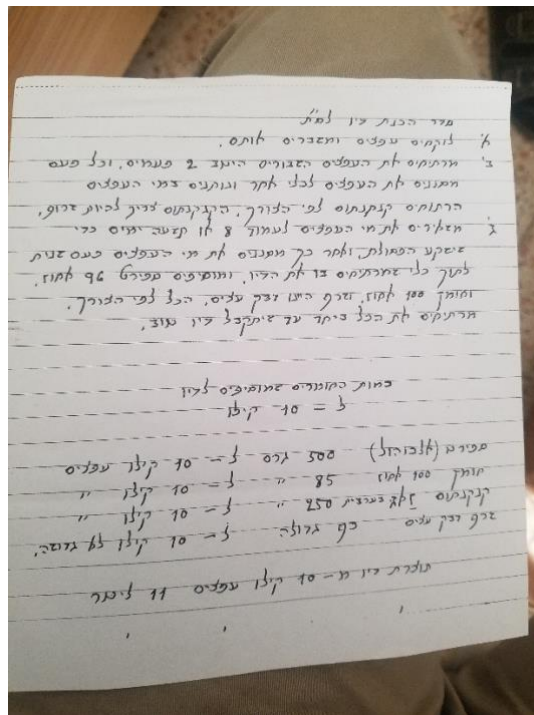 סדר הכנת דיו לס"ת
א. לוקחים עפצים ומשברים אותם.
ב. מרתיחים את העפצים השבורים היטב 2 פעמים. וכל פעם
מסננים את העפצים לכלי אחר ונותנים במי העפצים
הרתוחים קנקנתום לפי הצורך. הקנקנתום צריך להיות שרוף.
ג. משאירים את מי העפצים לעמוד 8 או תשעה ימים כדי
שישקע הפסולת. ואחר כך מסננים את מי העפצים פעם שנית
לתוך כלי שמרתיחים בו את הדיו. ומוסיפים ספירט 96 אחוז.
וחומץ 100 אחוז. ושרף היינו דבק עצים. הכל לפי הצורך.
מרתיחים את הכל ביחד עד שיתקבל דיו טוב.
כמות החומרים שמוסיפים לדיו
ל – 10 קילו
ספירט (אלכוהול) 500 גרם ל – 10 קילו עפצים
חומץ 100 אחוז 85 " ל – 10 קילו "
קנקנתום בערבית 250 " ל – 10 קילו "
שרף דבק עצים כף גדולה ל – 10 קילו לא גדושה.
תוצרת דיו מ – 10 קילו עפצים 11 ליטר